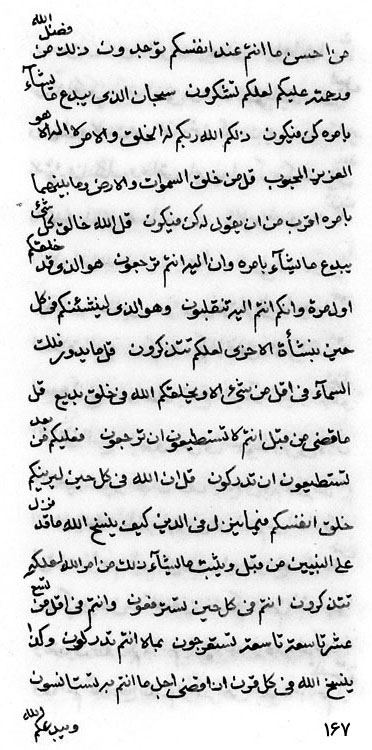 من احسن ما انتم عند انفسكم توجدون ذلك من فضل الله
ورحمته عليكم لعلكم تشكرون سبحان الذى يبدع ما يشآء
بامره كن فيكون ذلكم الله ربكم له الخلق والامر لا اله الا هو
العزيز المحبوب قل من خلق السموات والارض وما بينهما
بامره اقرب من ان يقول له كن فيكون قل الله خالق كل شئ
يبدع ما يشآء بامره وان اليه انتم ترجعون هو الذى قد خلقكم
اول مرة وانكم انتم اليه تنقلبون وهو الذى لينشئنكم فى كل
حين بنشأة الاخرى لعلكم تتذكرون قل ما يدور فلك
السمآء فى اقل من شئ الا ويخلقكم الله فى خلق بديع قل
ما قضى من قبل انتم لا تستطيعون ان ترجعون فعليكم فى بعد
تستطيعون ان تدركون قل ان الله فى كل حين ليرينكم
خلق انفسكم فيما ينزل فى الدين كيف ينسخ الله ما قد نزل
على النبيين من قبل ويثبت ما يشآء ذلك من امر الله لعلكم
تتذكرون انتم فى كل حين لترفعون وانتم فى اقل من تسع
عشر تاسعة تاسعة تستعرجون بما لا انتم تدركون وكذا
ينسخ الله فى كل قرون ان اقضى اجل ما انتم به تستانسون
ويبدعكم الله
١٦٧